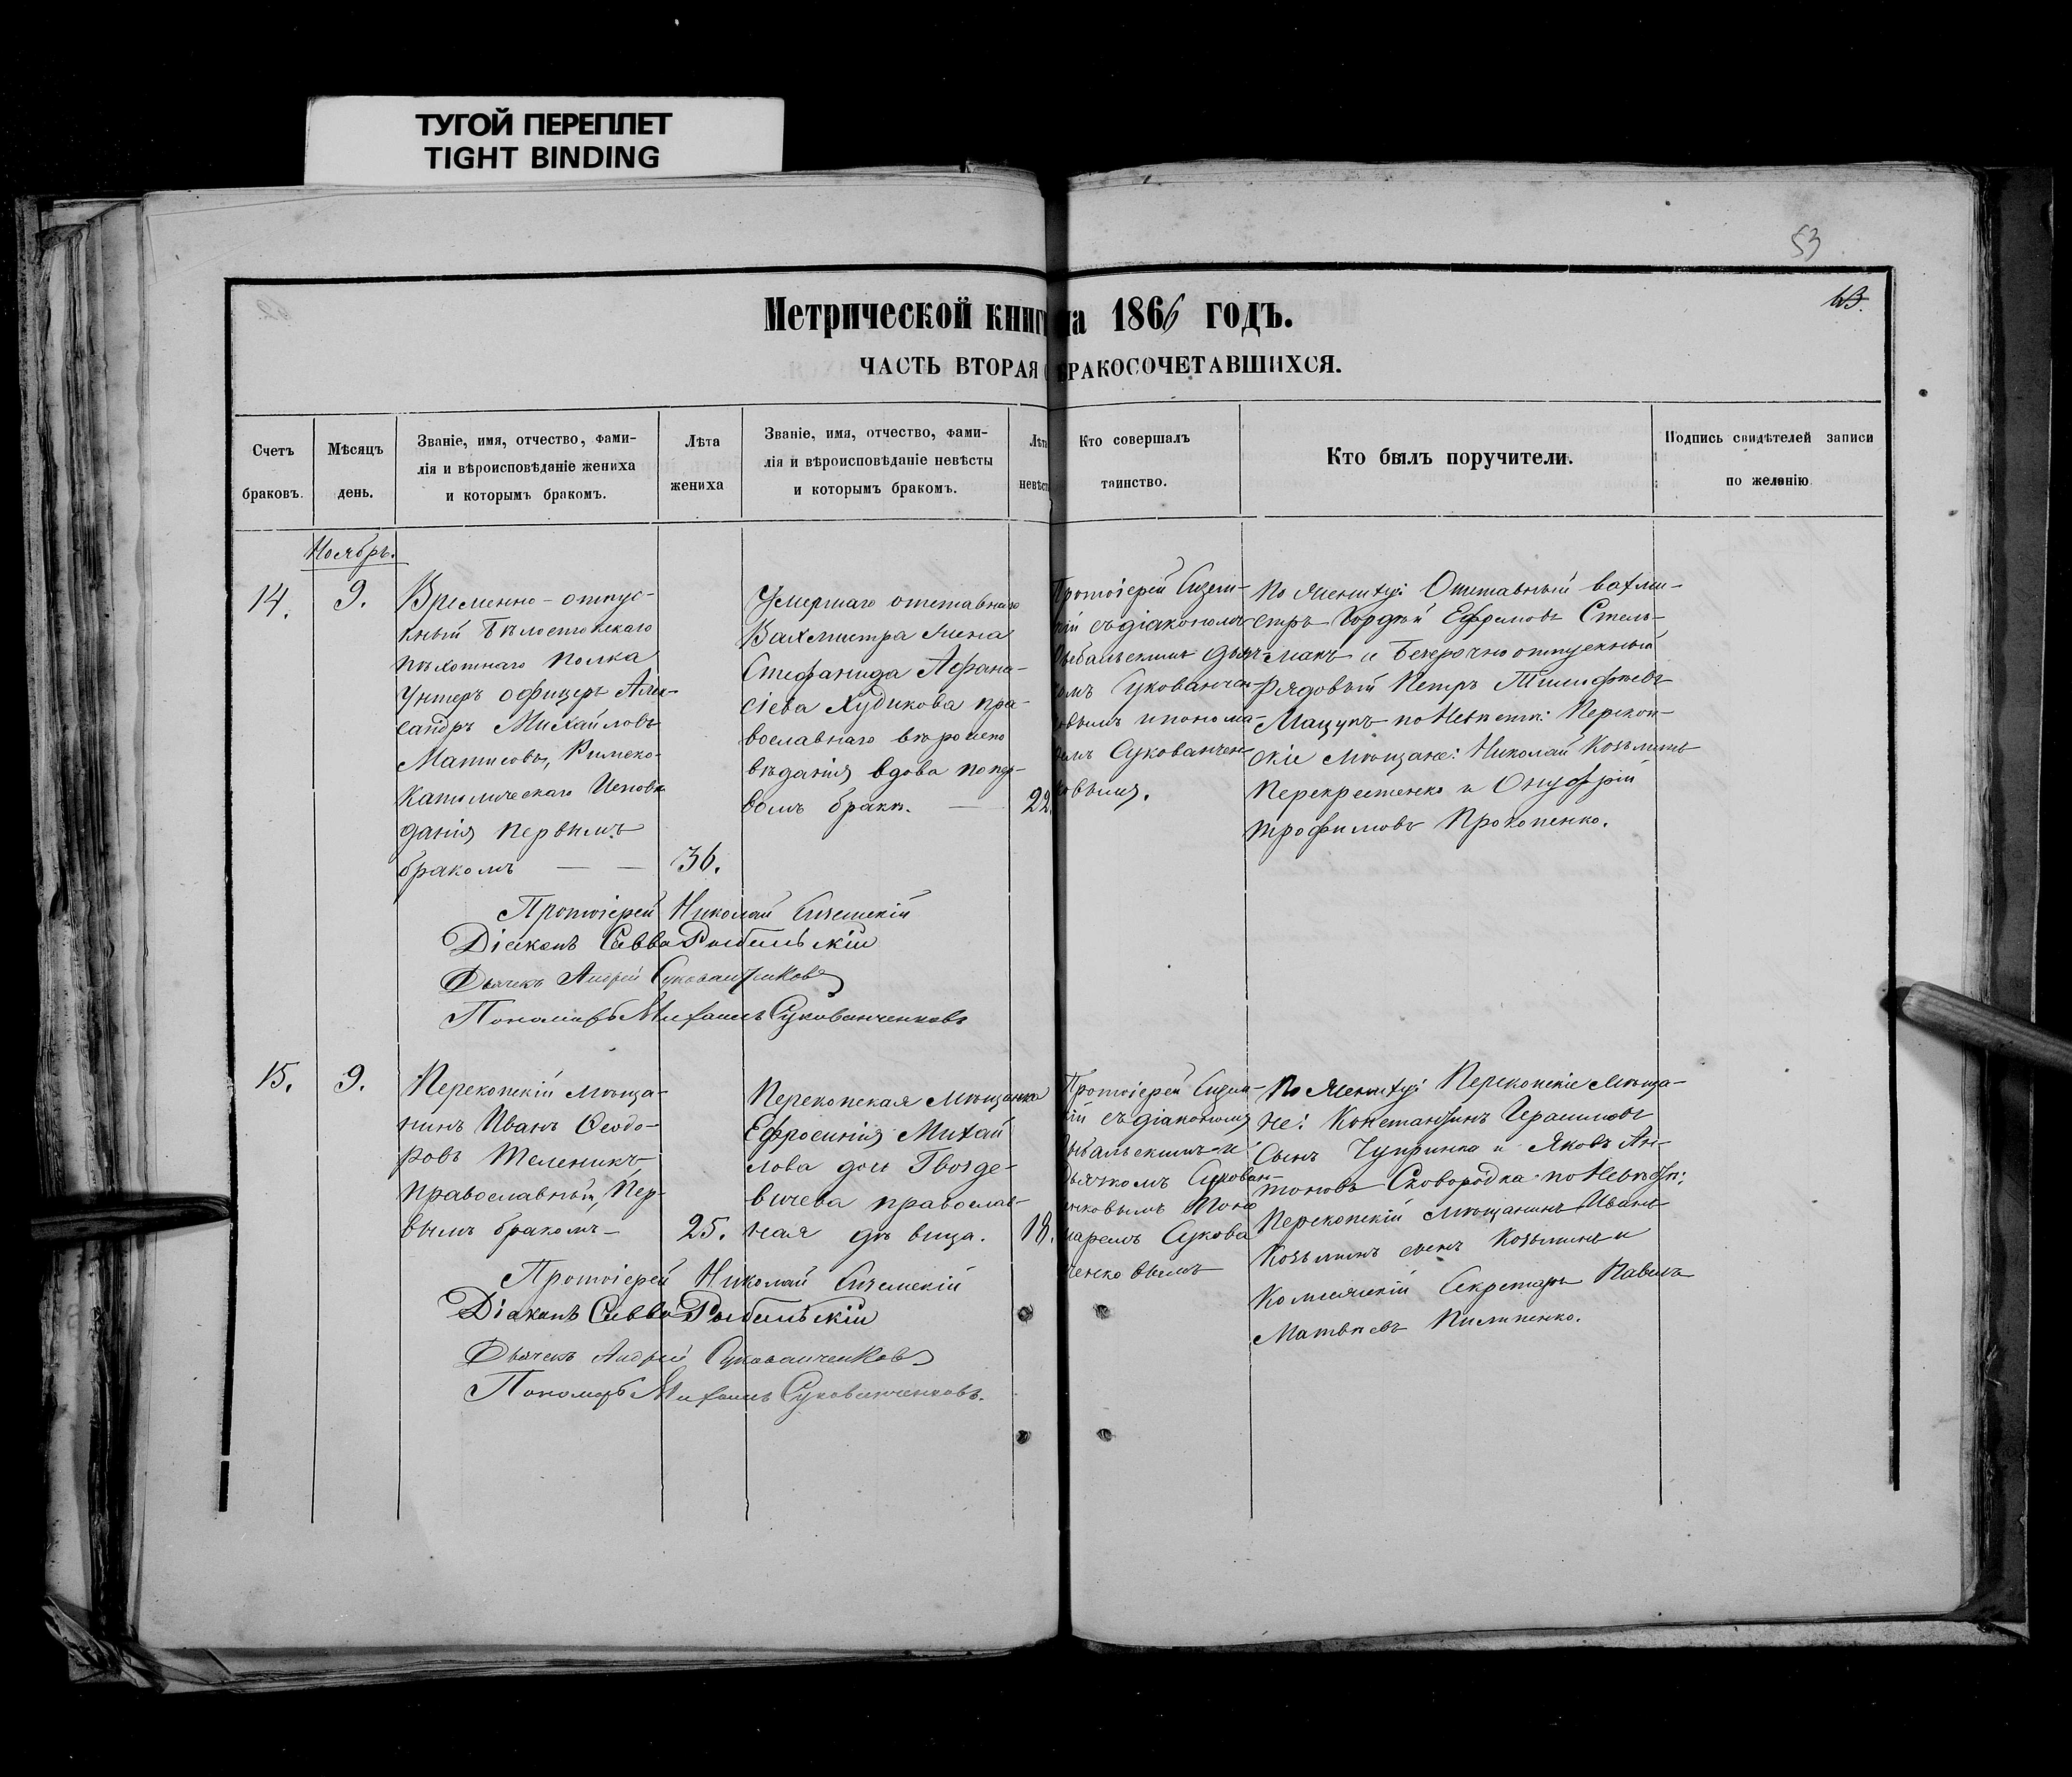 ТУГОЙ ПЕРЕПЛЕТ
TIGHT BINDING
53
Метрической книг на 1866 годъ.
ЧАСТЬ ВТОРАЯ БРАКОСОЧЕТАВШИХСЯ.
Счетъ
браковъ.
Мѣсяцъ
день.
Званіе, имя, отчество, фами-
лія и вѣроисповѣданіе жениха
и которымъ бракомъ.
Лѣта
жениха
Званіе, имя, отчество, фами-
лія и вѣроисповѣданіе невѣсты
и которымъ бракомъ.
Лѣта
невѣст
Кто совершалъ
таинство.
Кто былъ поручители.
Подпись свидѣтелей записи
по желанію
Ноябрь.
14.
9.
Временно-отпус-
кный Бѣлостокскаго
пѣхотнаго полка
Унтеръ офицеръ Алек-
сандръ Михайловъ
Матисовъ, Римско-
Католическаго Исповѣ
данія первымъ
бракомъ
36.
Умершаго отставнаго
Вахмистра жена
Стефанида Афана-
сіева Худикова пра-
вославнаго вѣроиспо
вѣданія вдова по пер-
вомъ бракѣ.
22.
Протоіерей
кій съ діакономъ
Рыбальскимъ дьяч-
комъ Сукованчен-
ковымъ и понома-
ремъ Сукованчен-
ковымъ.
По женихѣ: Отставный вахми-
стръ Гордѣй Ефимовъ Стель-
махъ и Безсрочно отпускный
Рядовый Петръ Тимофѣевъ
Мацукъ по невѣстѣ: Перекоп-
скіе мѣщане: Николай Козьминъ
Перекрестенко и Онуфрій
Трофимовъ Прокопенко.
Протоіерей Николай
Діаконъ Савва Рыбальскій
Дьячекъ Андрей Сукованченковъ
Пономарь Михаилъ Сукованченковъ
15.
9.
Перекопскій мѣща-
нинъ Иванъ Ѳеодо-
ровъ Теленикъ,
православный, пер-
вымъ бракомъ
25.
Перекопская мѣщанка
Ефросинія Михай
лова дочь Гвозде-
вичева православ-
ная дѣвица.
18.
Протоіерей
кій съ діакономъ
Рыбальскимъ и
дьячкомъ Сукован-
ченковымъ Поно
маремъ Сукова
ченковымъ
По женихѣ: Перекопскіе мѣща-
не: Константинъ Герасимовъ
Сынъ Чупринка и Яковъ Ан-
тоновъ Сковородка по невѣстѣ:
Перекопскій мѣщанинъ Иванъ
Козьминъ сынъ Козьминъ и
Секретарь Павелъ
Матвѣевъ Пилипенко.
Протоіерей Николай
Діаконъ Савва Рыбальскій
Дьячекъ Андрей Сукованченковъ
Пономарь Михаилъ Сукованченковъ.